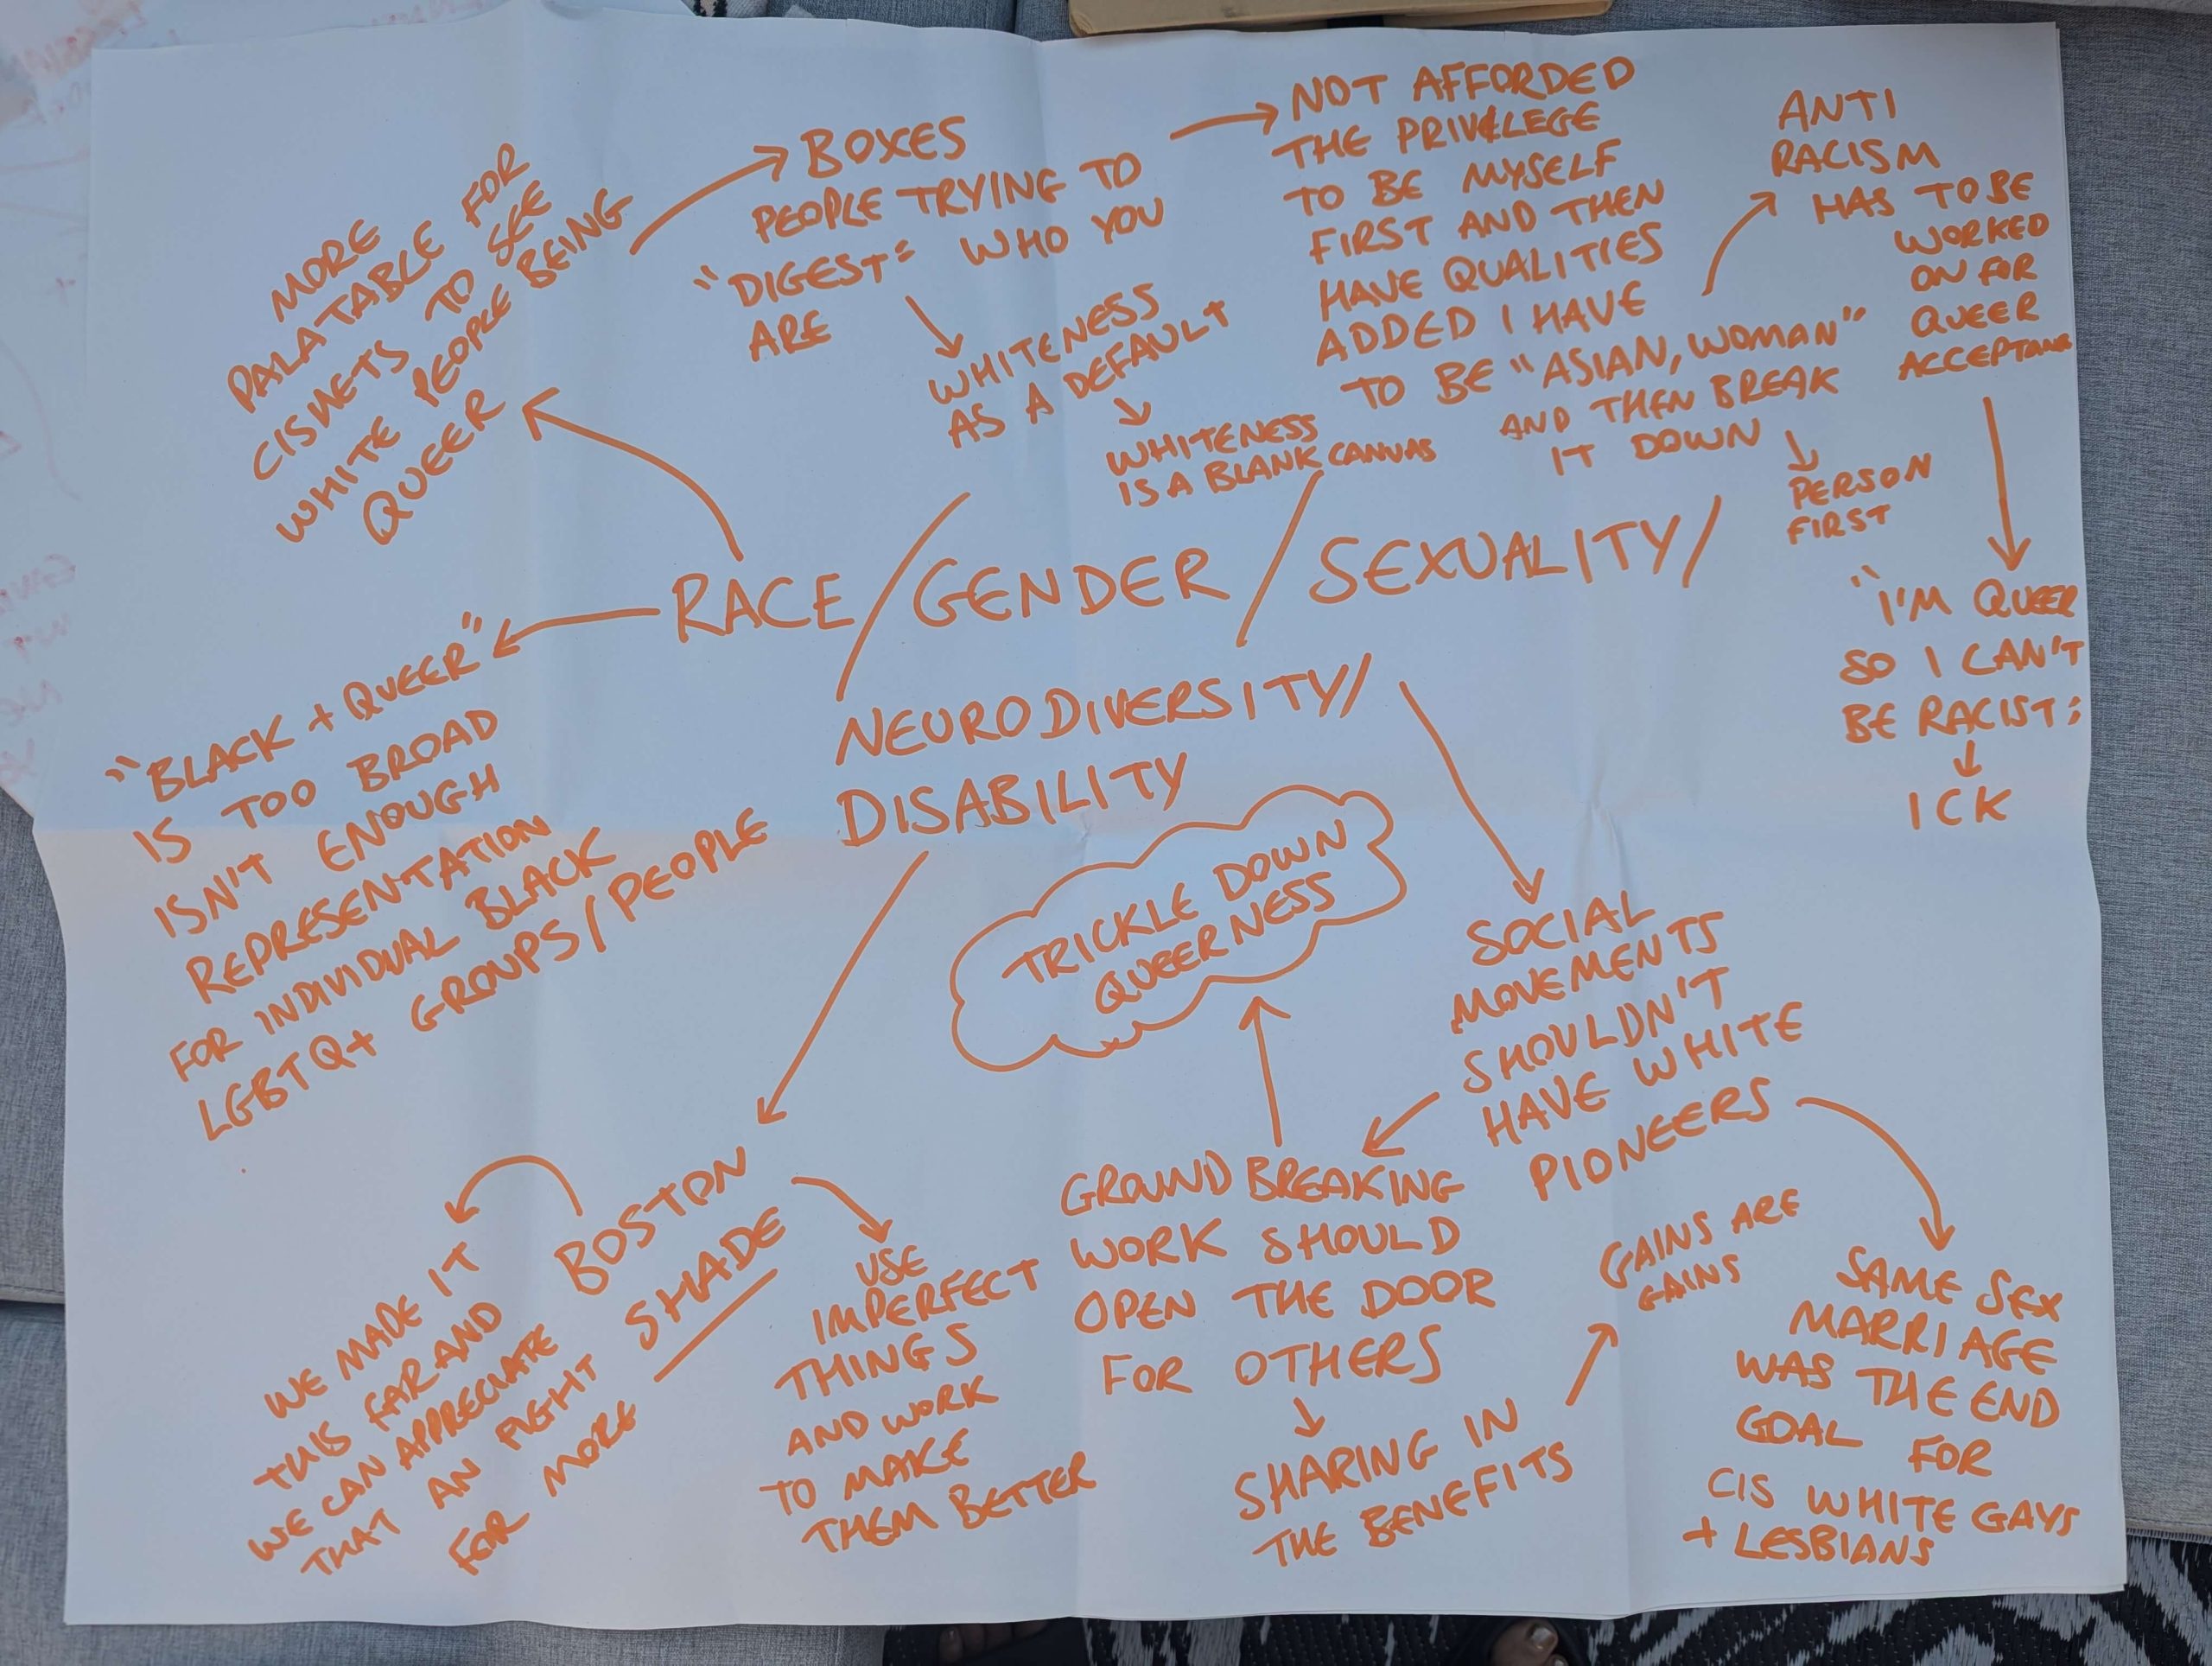 MORE
PALATABLE FOR
CISHETS TO SEE
WHITE PEOPLE BEING
QUEER
BOXES
PEOPLE TRYING TO
"DIGEST" WHO YOU
ARE
WHITENESS
AS A DEFAULT
WHITENESS
IS A BLANK CANVAS
NOT AFFORDED
THE PRIVELEGE
TO BE MYSELF
FIRST AND THEN
HAVE QUALITIES
ADDED I HAVE
TO BE "ASIAN, WOMAN"
AND THEN BREAK
IT DOWN
PERSON
FIRST
ANTI
RACISM
HAS TO BE
WORKED
ON FOR
QUEER
ACCEPTANCE
"I'M QUEER
SO I CAN'T
BE RACIST"
ICK
RACE / GENDER / SEXUALITY /
NEURODIVERSITY /
DISABILITY
"BLACK + QUEER"
IS TOO BROAD
ISN'T ENOUGH
REPRESENTATION
FOR INDIVIDUAL BLACK
LGBTQ+ GROUPS / PEOPLE
TRICKLE DOWN
QUEERNESS
SOCIAL
MOVEMENTS
SHOULDN'T
HAVE WHITE
PIONEERS
GROUND BREAKING
WORK SHOULD
OPEN THE DOOR
FOR OTHERS
SHARING IN
THE BENEFITS
GAINS ARE
GAINS
SAME SEX
MARRIAGE
WAS THE END
GOAL FOR
CIS WHITE GAYS
+ LESBIANS
BOSTON
SHADE
WE MADE IT
THIS FAR AND
WE CAN APPRECIATE
THAT AN FIGHT
FOR MORE
USE
IMPERFECT
THINGS
AND WORK
TO MAKE
THEM BETTER